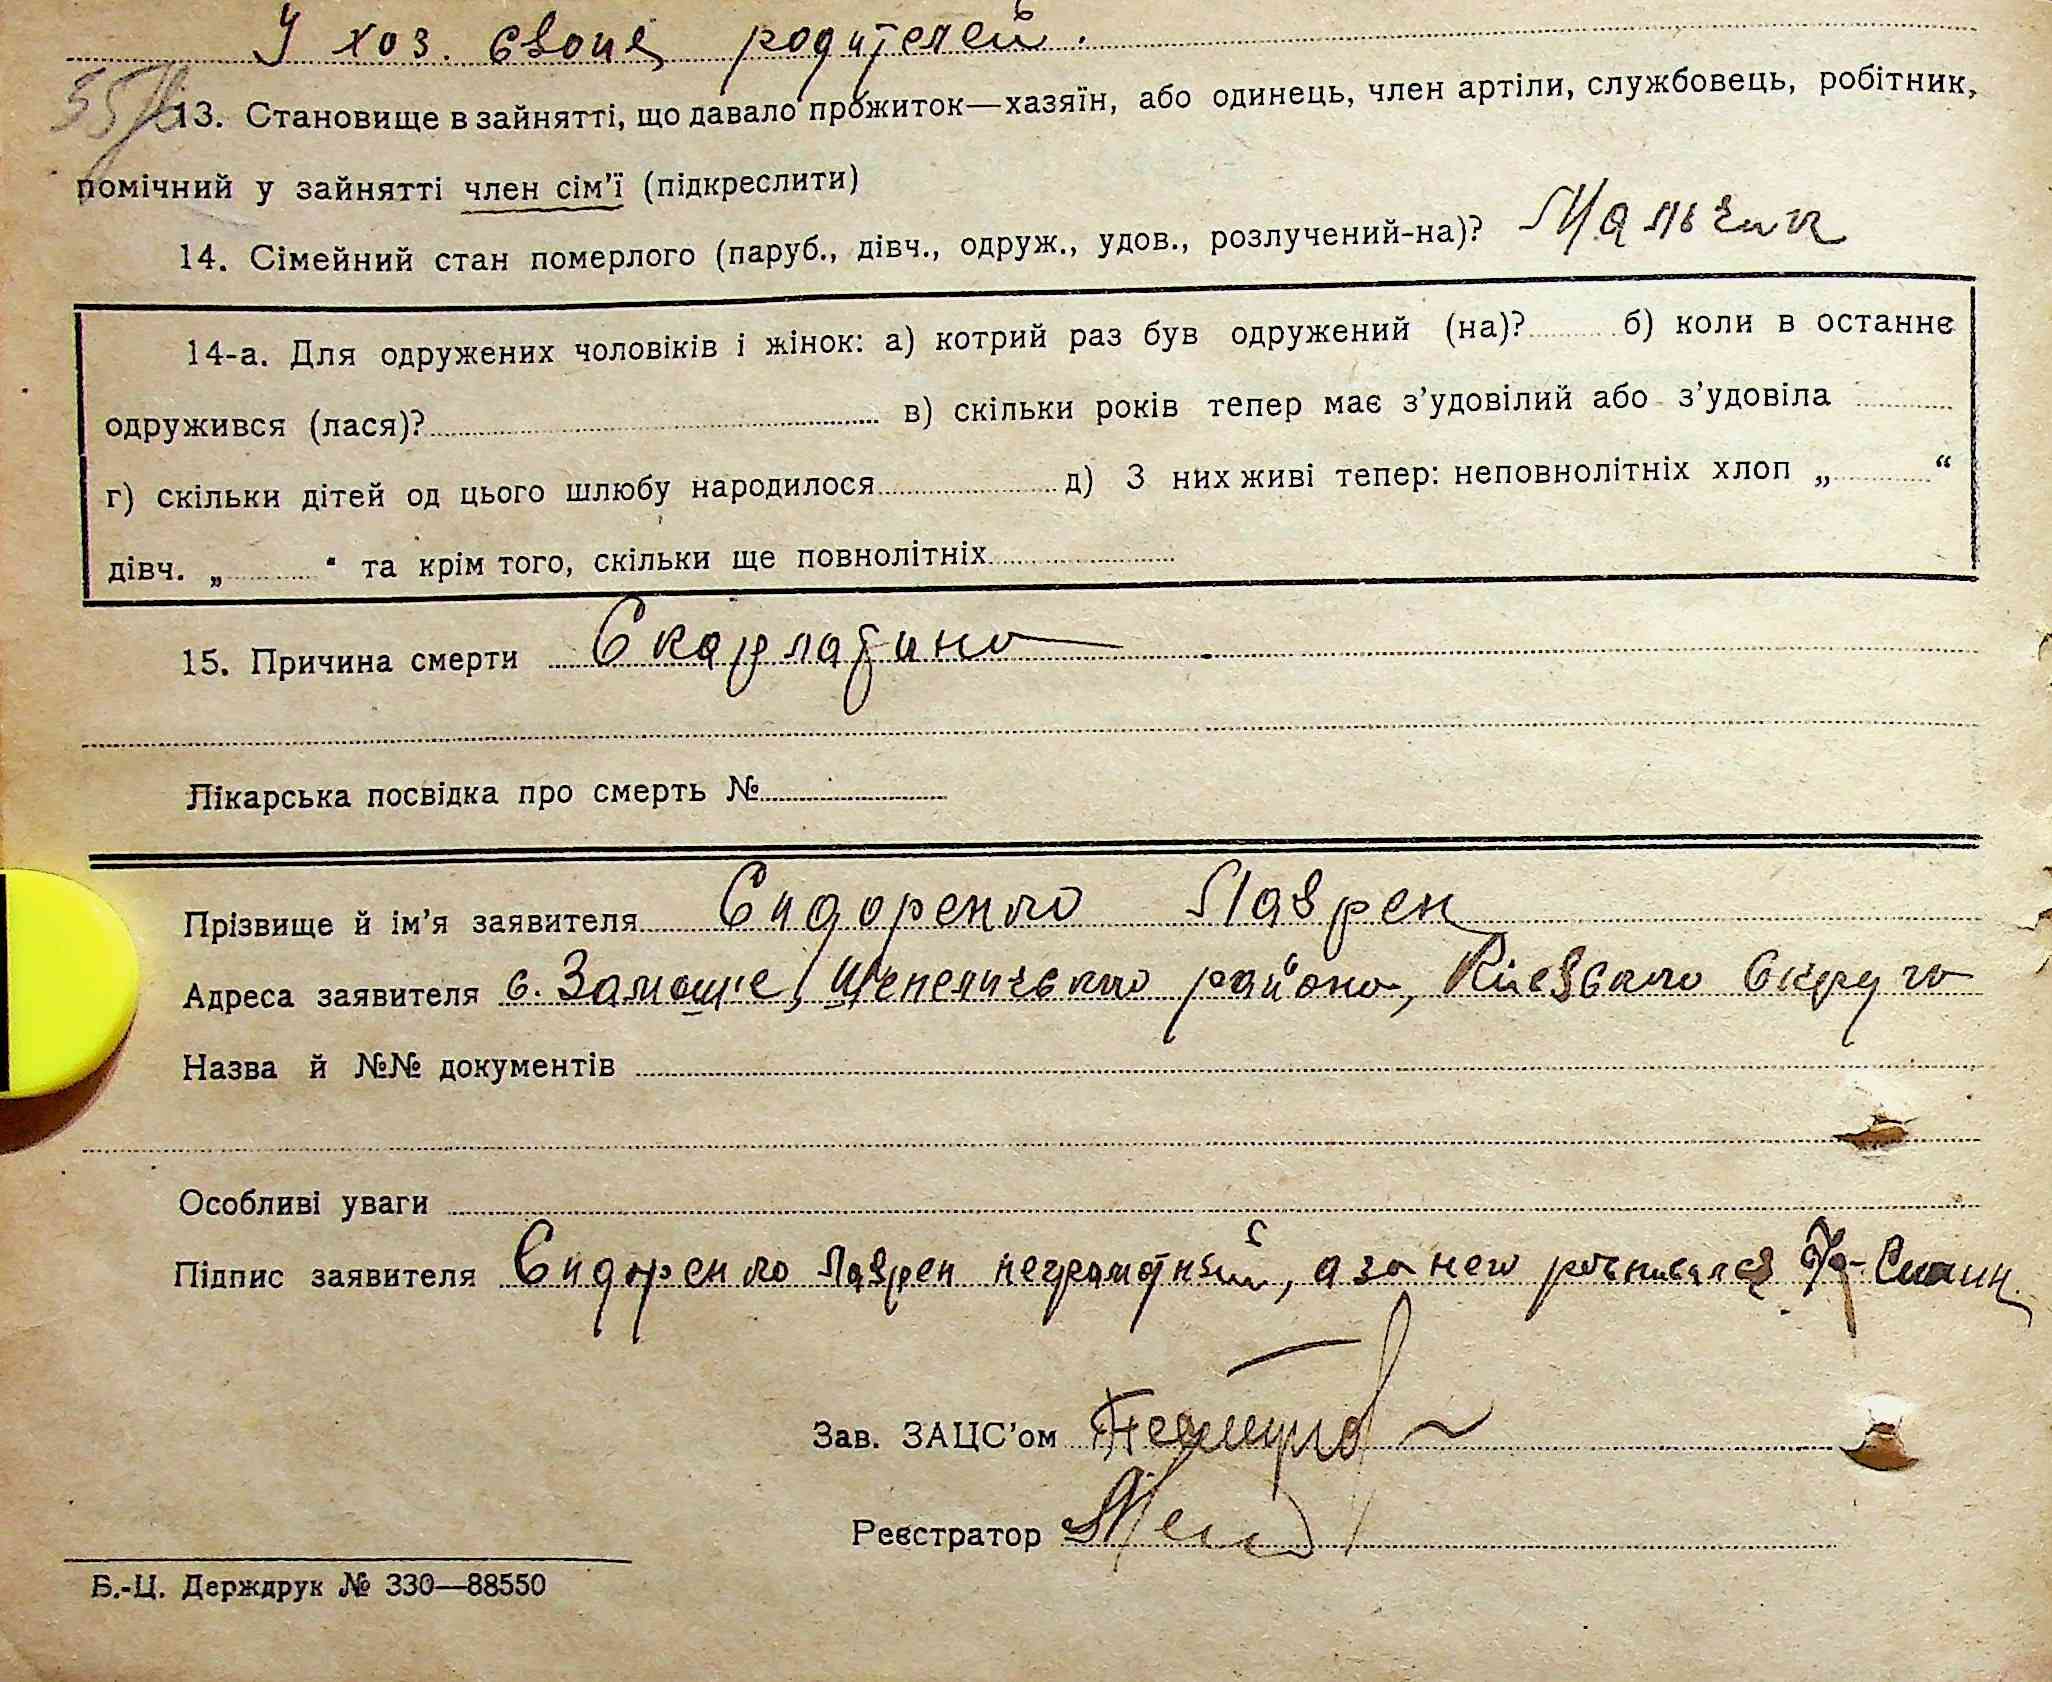 У хоз. своих родителей.
13. Становище в зайнятті, що давало прожиток—хазяїн, або одинець, член артіли, службовець, робітник,
помічний у зайнятті член сім'ї (підкреслити)
14. Сімейний стан померлого (паруб., дівч., одруж., удов., розлучений-на)? Мальчик
14-а. Для одружених чоловіків і жінок: а) котрий раз був одружений (на)? б) коли в останнє
одружився (лася)? в) скільки років тепер має з'удовілий або з'удовіла
г) скільки дітей од цього шлюбу народилося д) З них живі тепер: неповнолітніх хлоп „ “
дівч. „ “ та крім того, скільки ще повнолітніх
15. Причина смерти Скарлатина
Лікарська посвідка про смерть №
Прізвище й ім'я заявителя Сидоренко Лаврен
Адреса заявителя с. Замошье, Шепеличского района, Киевского Округа
Назва й №№ документів
Особливі уваги
Підпис заявителя Сидоренко Лаврен неграмотный, а за него росписался
Зав. ЗАЦС'ом
Реєстратор
Б.-Ц. Держдрук № 330—88550